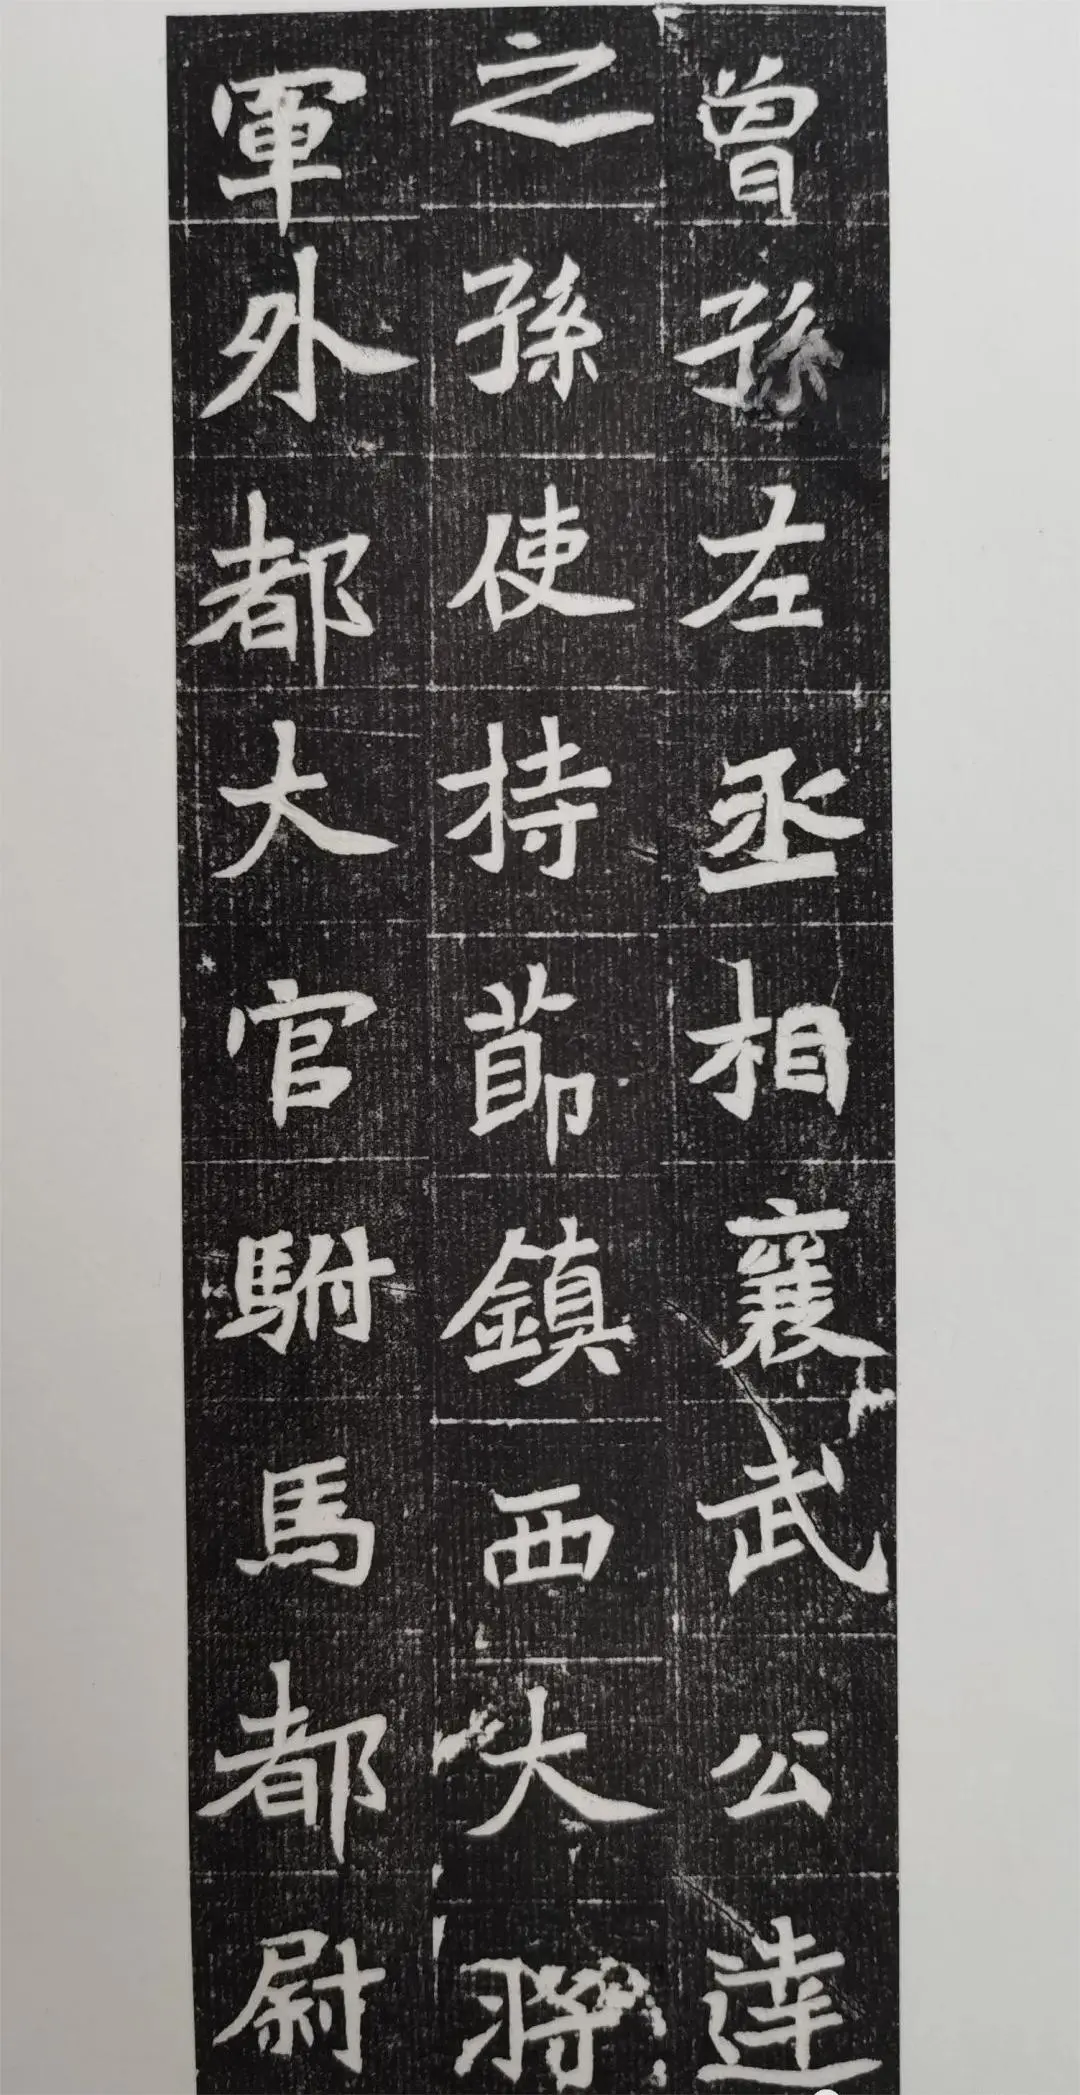 曾孫左丞相襄武公達
之孫使持莭鎮西大將
軍外都大官駙馬都尉